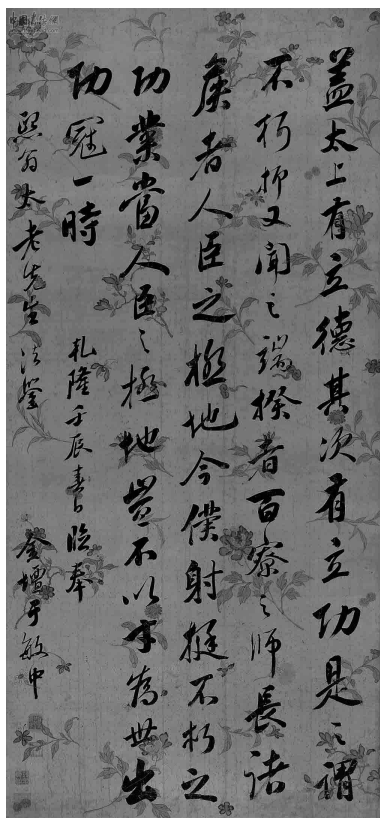 蓋太上有立德其次有立功是之謂
不朽抑又聞之端揆者百寮之師長諸
矦者人臣之極地今僕射挺不朽之
功業當人臣之極地豈不以才為世出
功冠一時
乹隆壬辰春日臨奉
熙翁太老先生法鑒
金壇于敏中